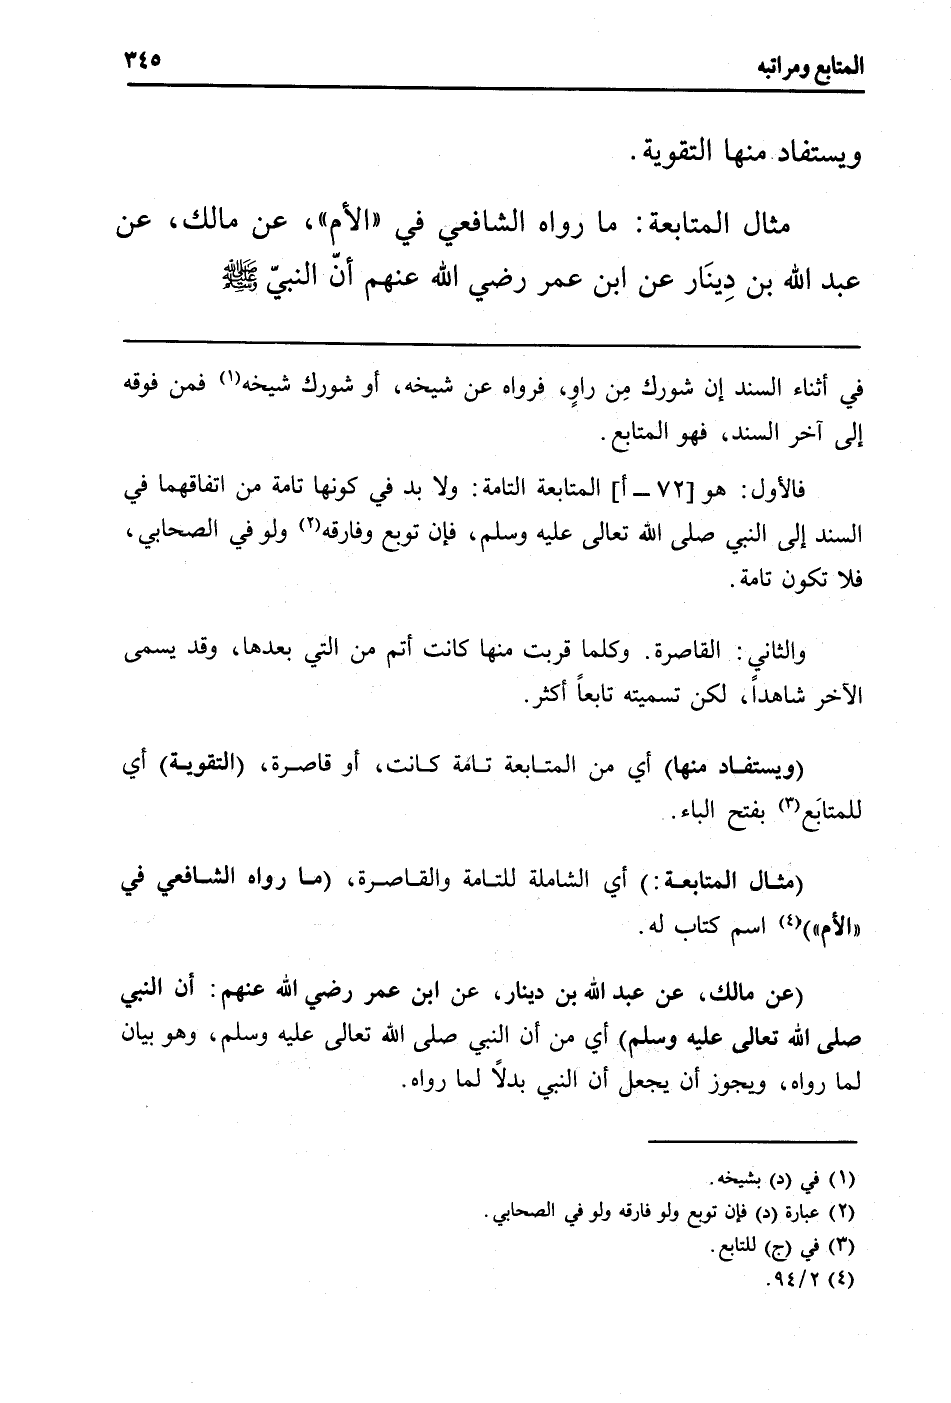 المتابع ومراتبه ٣٤٥
ويستفاد منها التقوية.
مثال المتابعة: ما رواه الشافعي في «الأم»، عن مالك، عن
عبد الله بن دِينَار عن ابن عمر رضي الله عنهم أنّ النبيّ ﷺ
في أثناء السند إن شورك مِن راوٍ، فرواه عن شيخه، أو شورك شيخه(١) فمن فوقه
إلى آخر السند، فهو المتابع.
فالأول: هو [٧٢ ــ أ] المتابعة التامة: ولا بد في كونها تامة من اتفاقهما في
السند إلى النبي صلى الله تعالى عليه وسلم، فإن توبع وفارقه(٢) ولو في الصحابي،
فلا تكون تامة.
والثاني: القاصرة. وكلما قربت منها كانت أتم من التي بعدها، وقد يسمى
الآخر شاهداً، لكن تسميته تابعاً أكثر.
(ويستفاد منها) أي من المتابعة تامة كانت، أو قاصرة، (التقوية) أي
للمتابَع(٣) بفتح الباء.
(مثال المتابعة:) أي الشاملة للتامة والقاصرة، (ما رواه الشافعي في
«الأم»)(٤) اسم كتاب له.
(عن مالك، عن عبد الله بن دينار، عن ابن عمر رضي الله عنهم: أن النبي
صلى الله تعالى عليه وسلم) أي من أن النبي صلى الله تعالى عليه وسلم، وهو بيان
لما رواه، ويجوز أن يجعل أن النبي بدلًا لما رواه.
(١) في (د) بشيخه.
(٢) عبارة (د) فإن توبع ولو فارقه ولو في الصحابي.
(٣) في (ج) للتابع.
(٤) ٩٤/٢.